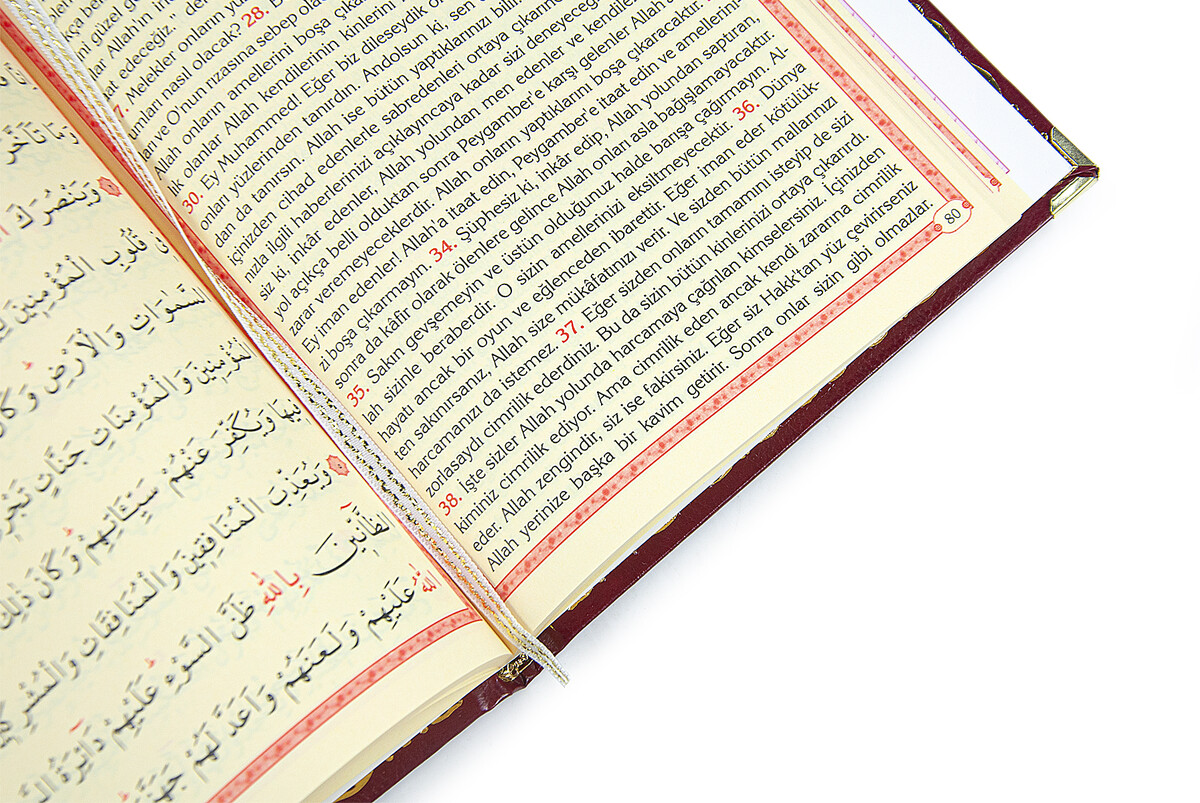 güzel
Allah'ın
edeceğiz.,,
Melekler onların
nasıl olacak? 28.
ve O'nun rızasına sebep
Allah onların amellerini boşa
lik olanlar Allah kendilerinin kinlerini
30. Ey Muhammed! Eğer biz dileseydik
onları yüzlerinden tanırdın. Andolsun ki, sen
dan da tanırsın. Allah ise bütün yaptıklarınızı
içinizden cihad edenlerle sabredenleri ortaya
nızla ilgili haberlerinizi açıklayıncaya kadar sizi
siz ki, inkâr edenler, Allah yolundan men edenler ve
yol açıkça belli olduktan sonra Peygamber'e karşı gelenler
zarar veremeyeceklerdir. Allah onların yaptıklarını boşa çıkaracaktır.
Ey iman edenler! Allah'a itaat edin, Peygamber'e itaat edin ve amellerini-
zi boşa çıkarmayın. 34. Şüphesiz ki, inkâr edip, Allah yolundan saptıran,
sonra da kâfir olarak ölenlere gelince Allah onları asla bağışlamayacaktır.
35. Sakın gevşemeyin ve üstün olduğunuz halde barışa çağırmayın. Al-
lah sizinle beraberdir. O sizin amellerinizi eksiltmeyecektir. 36. Dünya
hayatı ancak bir oyun ve eğlenceden ibarettir. Eğer iman eder kötülük-
ten sakınırsanız, Allah size mükâfatınızı verir. Ve sizden bütün mallarınızı
harcamanızı da istemez. 37. Eğer sizden onların tamamını isteyip de sizi
zorlasaydı cimrilik ederdiniz. Bu da sizin bütün kinlerinizi ortaya çıkarırdı.
38. İşte sizler Allah yolunda harcamaya çağrılan kimselersiniz. İçinizden
kiminiz cimrilik ediyor. Ama cimrilik eden ancak kendi zararına cimrilik
eder. Allah zengindir, siz ise fakirsiniz. Eğer siz Hakk'tan yüz çevirirseniz
Allah yerinize başka bir kavim getirir. Sonra onlar sizin gibi olmazlar.
80
تَأَخَّرَ
وَيَنْصُرَكَ
قُلُوبِ الْمُؤْمِنِينَ
السَّمٰوَاتِ وَالْاَرْضِ وَكَانَ
الْمُؤْمِنِينَ وَالْمُؤْمِنَاتِ جَنَّاتٍ
فِيهَا وَيُكَفِّرَ عَنْهُمْ سَيِّـَٔاتِهِمْ وَكَانَ ذٰلِكَ
وَيُعَذِّبَ الْمُنَافِقِينَ وَالْمُنَافِقَاتِ
الظَّٓانِّينَ بِاللّٰهِ ظَنَّ السَّوْءِ عَلَيْهِمْ دَٓائِرَةُ
اللّٰهُ عَلَيْهِمْ وَلَعَنَهُمْ وَاَعَدَّ لَهُمْ